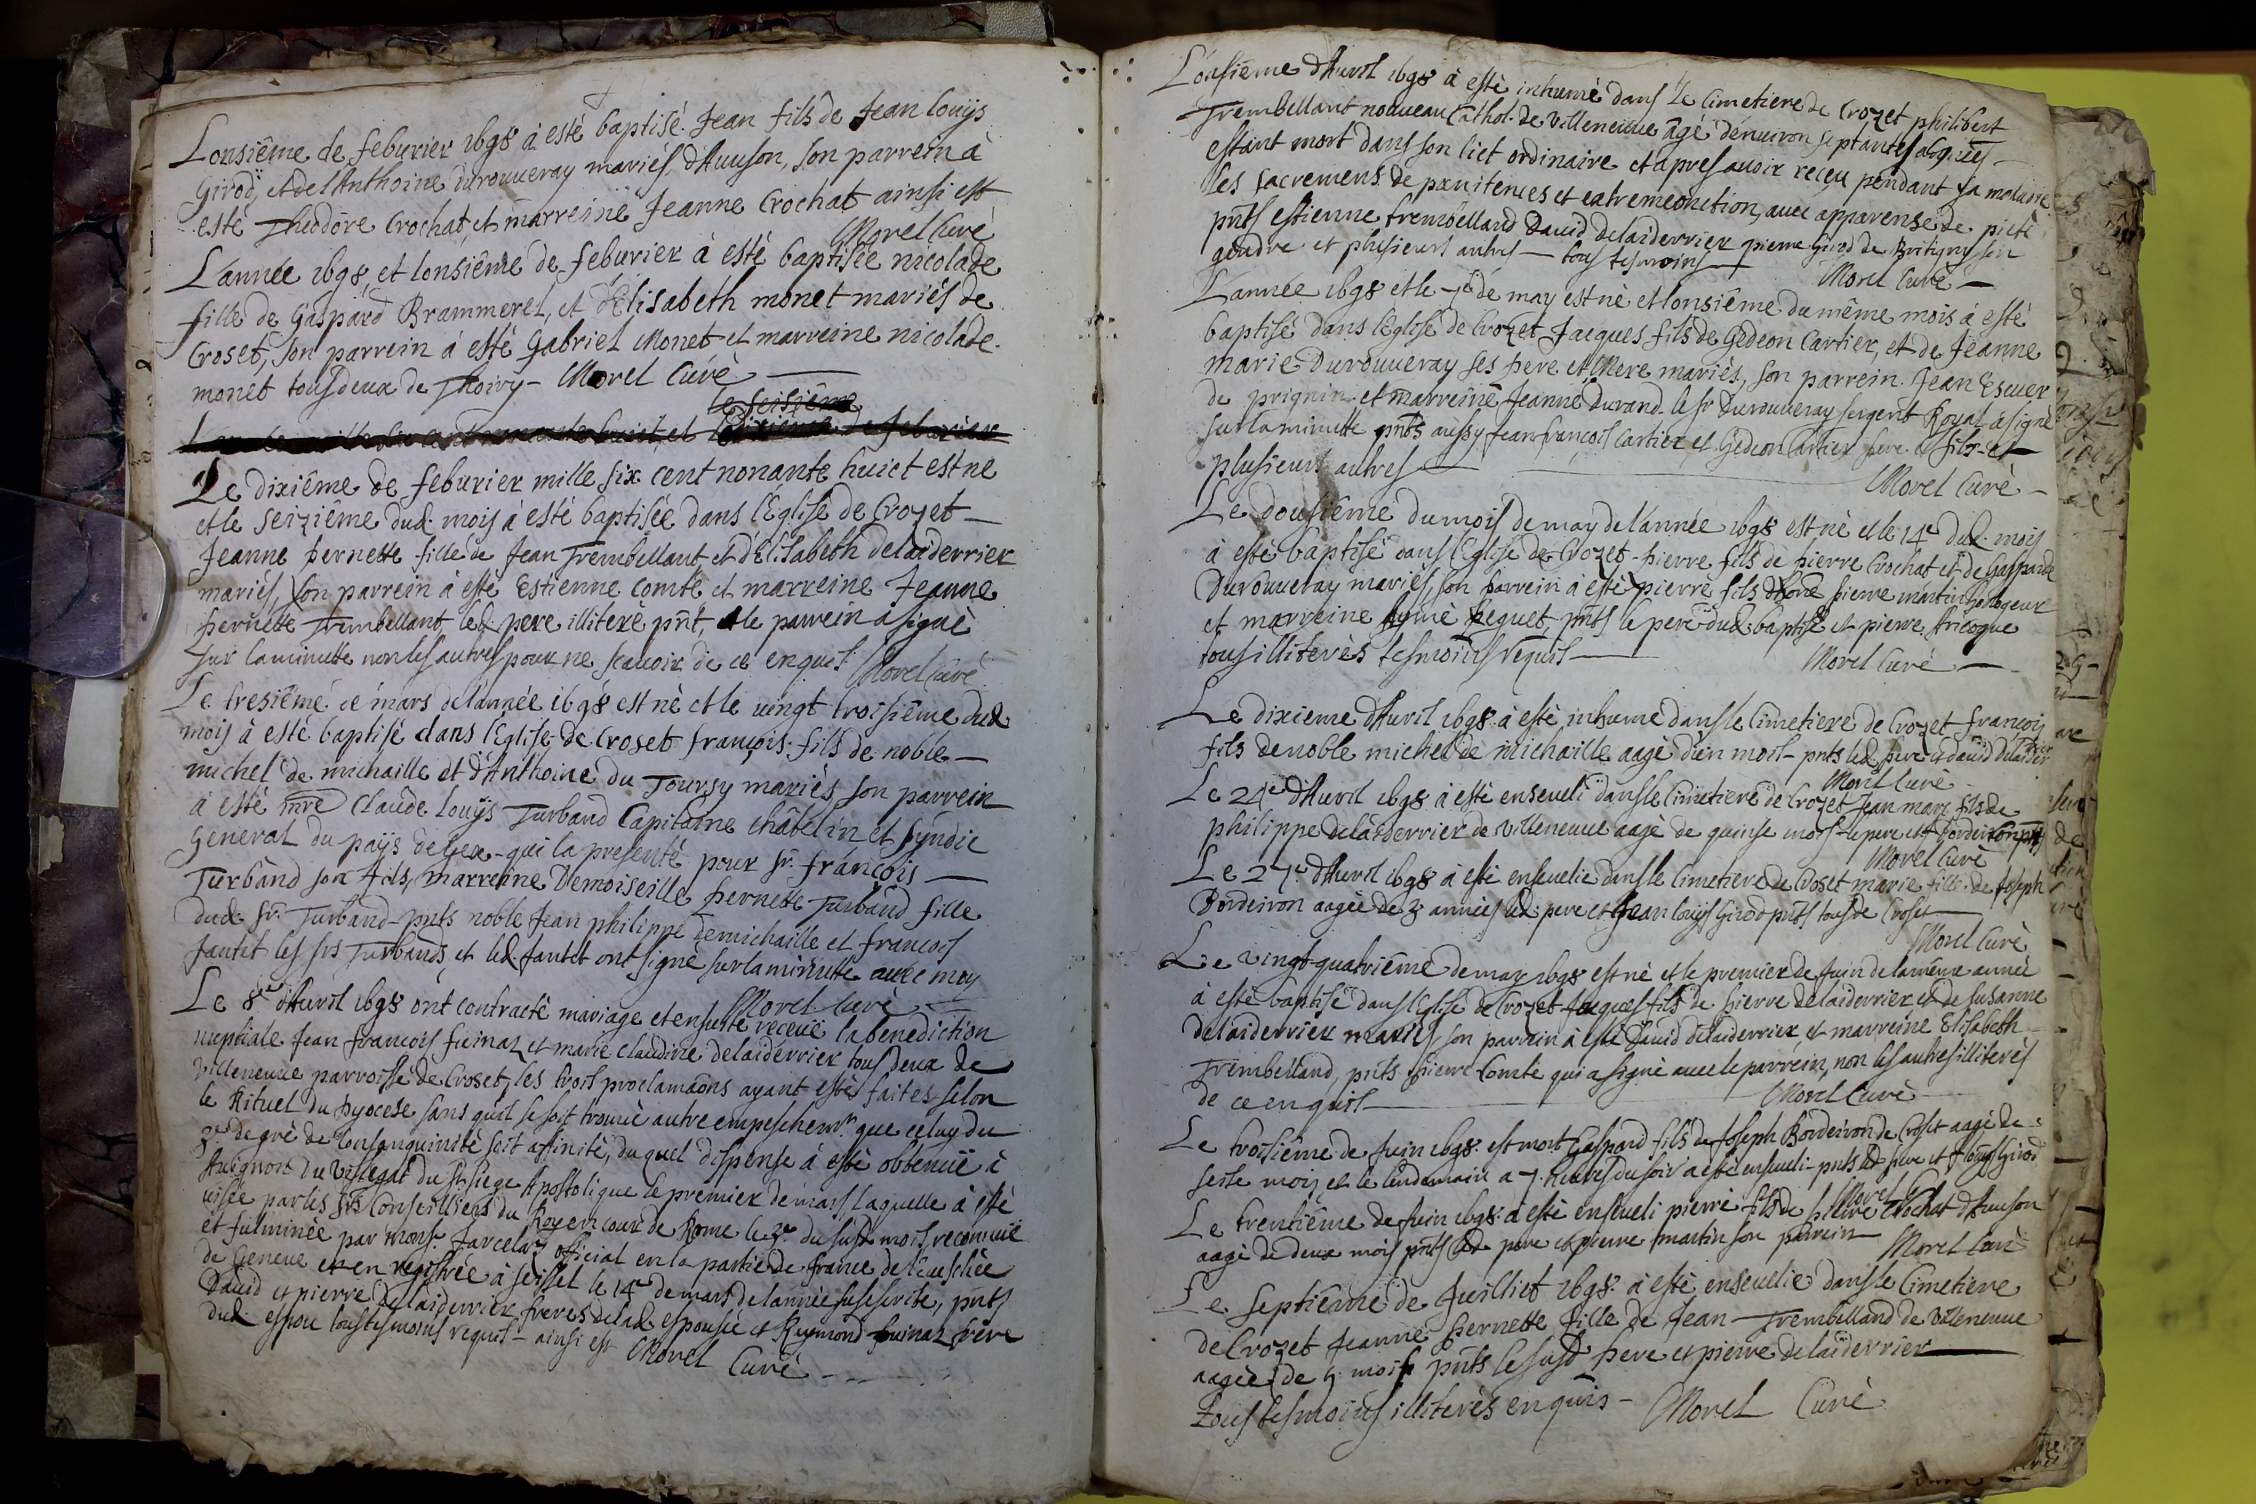 Lonsiême de feburier 1698 à esté baptisé Jean fils de Jean louÿs
Girod, et del Anthoine durouueray mariés, d'Auuson, son parrein à
esté Theodore Crochat, et marreine Jeanne Crochat ainsi est
Morel Curé
L'année 1698, et lonsiême de feburier à esté baptisée nicolade
fille de Gaspard Brammerel, et d'Elisabeth monet mariés de
Croset, son parrein à esté Gabriel Monet et marreine nicolade
monet tous deux de Thoiry - Morel Curé
le seisiême
Le dixiême de feburier mille six cent nonante huict est né
et le seiziême dud. mois à esté baptisée dans l'Eglise de Crozet
Jeanne pernette fille de Jean Trembellant, et d'Elisabeth delaiderrier
mariés, son parrein à esté Estienne Comte et marreine Jeanne
pernette Trembellant, led. pere illiteré pñt, et le parrein à signé
sur la minutte non les autres pour ne scauoir de ce enquis. Morel Curé
Le tresiême de mars de l'année 1698 est né et le uingt troisiême dud.
mois à esté baptisé dans l'Eglise de Croset françois fils de noble
michel de michaille et d'Anthoine du Toursy mariés son parrein
à esté mre Claude Louÿs Turband Capitaine châtelin et syndic
General du païs de Gex - qui la presenté pour sr. françois
Turband son fils, marreine Demoiseille pernette Turband fille
dud. sr. Turband pñts noble Jean philippe de michaille et francois
fantet les srs Turbands, et led. fantet ont signé sur la minutte auec moy
Morel Curé
Le 8e d'Auril 1698 ont contracté mariage et ensuitte receuë la benediction
nuptiale Jean francois fuinaz et marie Claudine delaiderrier tous deux de
Villeneuue parroisse de Croset, les trois proclamaõns ayant estés faites selon
le Rituel du Dyocese sans quil se soit trouué autre empeschemt. que celuy du
3e. degré de Consanguinité soit affinité, duquel dispense à esté obtenuë à
Auignon du Vicelegat du st. siege Apostolique le premier de mars laquelle à esté
uisée par les srs. Conseilliers du Roy en cour de Rome le 3e. du susd. mois, reconnuë
et fulminée par monsr. Jarcelaz official en la partie de france de l'euesché
de Geneue et en registrée à Seissel le 14e de mars de l'année susescrite, pñts
Dauid et pierre delaiderrier freres delad. espouse et Raymond fuinaz frere
dud. espou tous tesmoins requis - ainsi est Morel Curé
L'onsiême d'Auril 1698 à esté inhumé dans le Cimetiere de Crozet philibert
Trembellant nouueau Cathol. de Villeneuue âgé d'enuiron septante années
estant mort dans son lict ordinaire et apres auoir reçeu pendant sa maladie
les sacremens de pœnitences et extremeonction, auec apparense de pieté
pñts estienne trembelland Dauid delaiderrier pierre Girod de Bretigny son
gendre et plusieurs autres - tous tesmoins
Morel Curé
L'année 1698 et le 7e de may est né et lonsiême du même mois à esté
baptisé dans l'Eglise de Crozet Jacques fils de Gedeon Cartier, et de Jeanne
marie Durouueray ses pere et Mere mariés, son parrein Jean Escuer
de prignin et marreine Jeanne Durand le sr Durouueray sergent Royal à signé
sur la minutte pñts aussy Jean françois Cartier et Gedeon Cartier pere et fils et
plusieurs autres
Morel Curé
Le dousiême du mois de may de l'année 1698 est né et le 14e dud. mois
à esté baptisé dans l'Eglise de Crozet - pierre fils de pierre Crochat et de Gasparde
Durouueray mariés, son parrein à esté pierre fils d'hon. pierre martin
et marreine Aymé Peguet, pñts le pere dud. baptisé et pierre fricoque
tous illiterés tesmoins requis
Morel Curé
Le dixieme d'Auril 1698 à esté inhumé dans le Cimetiere de Crozet françois
fils de noble michel de michaille aagé d'un mois - pñts led. pere et dauid delaiderrier
Morel Curé
Le 24e d'Auril 1698 à esté enseueli dans le Cimetiere de Crozet Jean marc fils de
philippe delaiderrier de Villeneuue aagé de quinse mois - le pere et Bordeiron pñts
Morel Curé
Le 27e. d'Auril 1698 à esté enseuelie dans le Cimetiere de Croset marie fille de Joseph
Bordeiron aagée de 3 années led. pere et Jean louÿs Girod pñts tous de Croset
Morel Curé
Le vingt quatriême de may 1698 est né et le premier de Juin de la même année
à esté baptisé dans l'Eglise de Crozet Jacques fils de pierre delaiderrier et de susanne
delaiderrier mariés, son parrein à esté Dauid delaiderrier, et marreine Elisabeth
Trembelland, pñts pierre Comte qui a signé auec le parrein, non les autres illiterés
de ce enquis
Morel Curé
Le troisiême de Juin 1698. est mort Gaspard fils de Joseph Bordeiron de Croset aagé de
seise mois et le lendemain a 7. heures du soir a esté enseueli - pñts led. pere et Girod
Morel C.
Le trentiême de Juin 1698. à esté enseueli pierre fils de pierre Crochat d'Auuson
aagé de deux mois pñts led. pere et pierre martin son parrein
Morel Curé
Le septiême de Juilliet 1698. à esté enseuelie dans le Cimetiere
de Crozet Jeanne pernette fille de Jean Trembelland de Villeneuue
aagée de 5 mois pñts le susd. pere et pierre delaiderrier
tous tesmoins illiterés enquis - Morel Curé